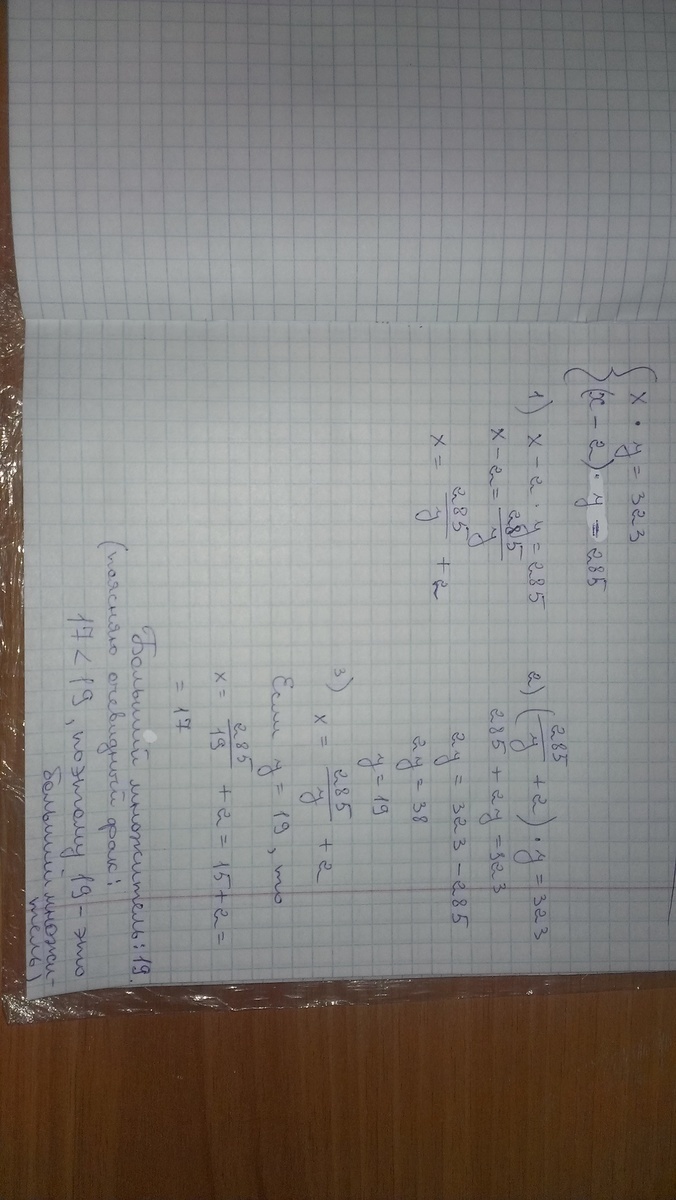 x · y = 323
(x - 2) · y = 285
1) x - 2 · y = 285
x - 2 = 285/y
x = 285/y + 2
2) (285/y + 2) · y = 323
285 + 2y = 323
2y = 323 - 285
2y = 38
y = 19
3) x = 285/y + 2
Если y = 19, то
x = 285/19 + 2 = 15 + 2 =
= 17
Больший множитель: 19.
(поясняю очевидный факт:
17 < 19, поэтому 19 - это
больший множи-
тель)